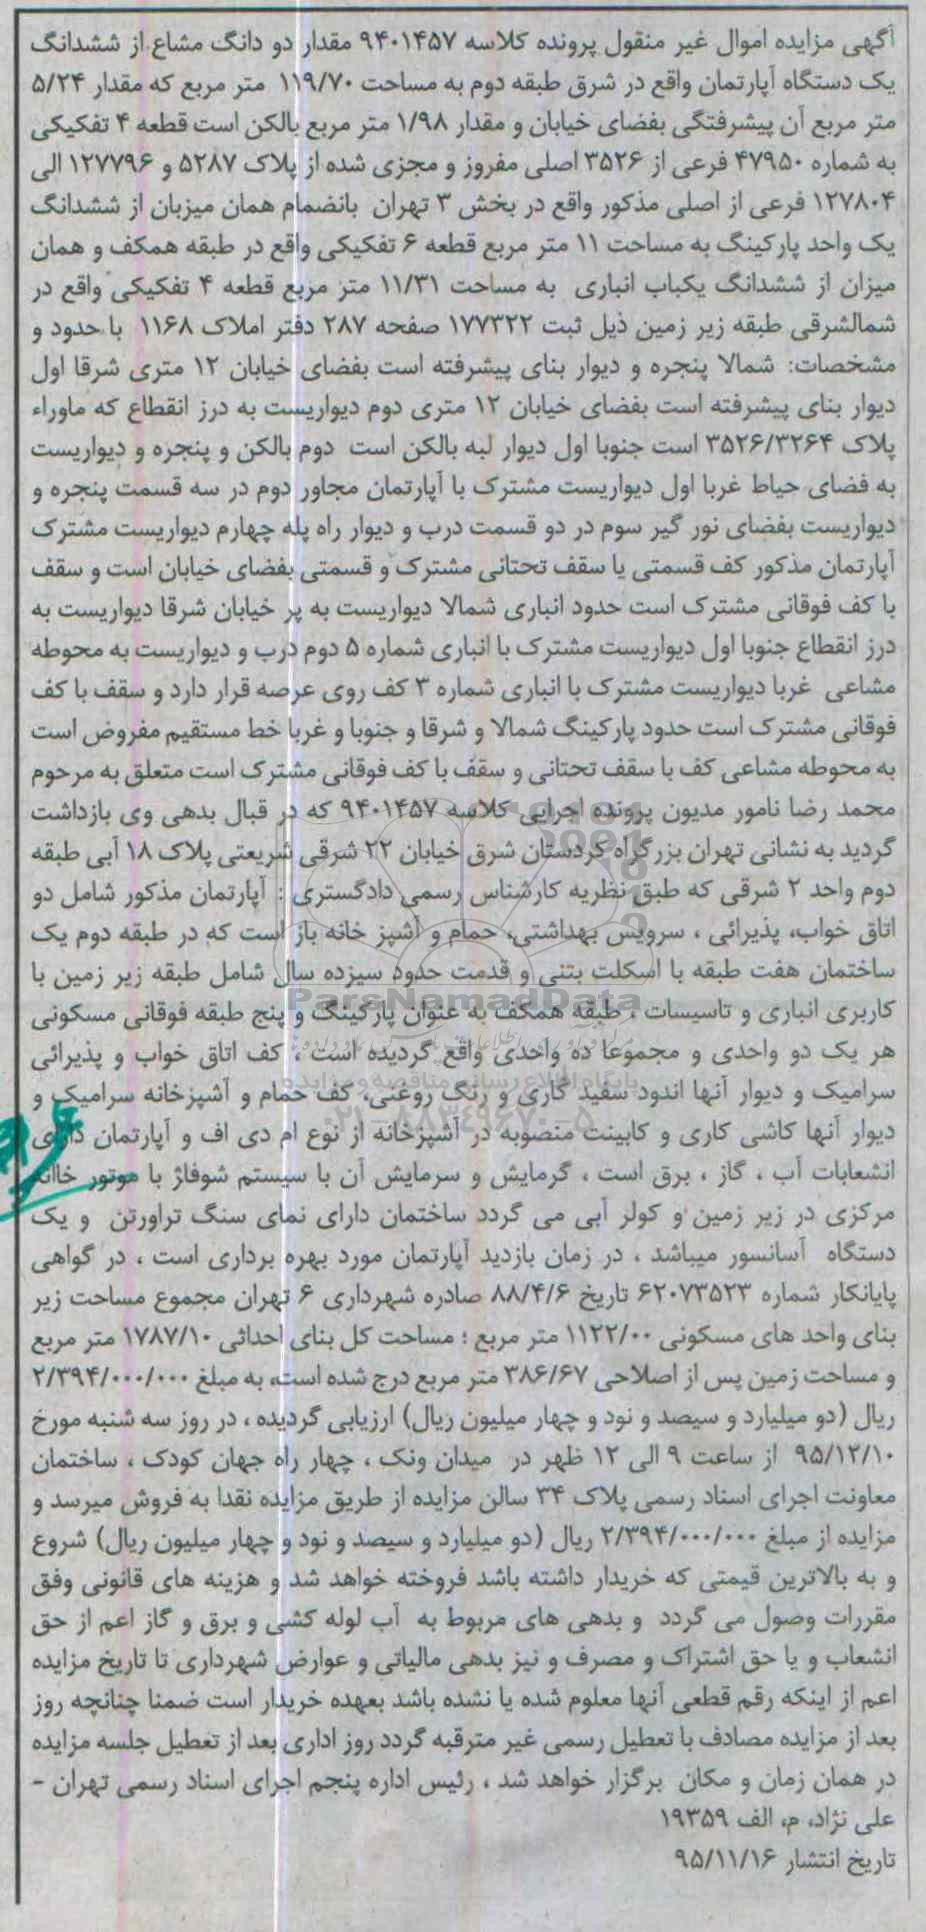 آگهی مزایده اموال غیر منقول پرونده کلاسه ۹۴۰۱۴۵۷ مقدار دو دانگ مشاع از ششدانگ
یک دستگاه آپارتمان واقع در شرق طبقه دوم به مساحت ۱۱۹/۷۰ متر مربع که مقدار ۵/۲۴
متر مربع آن پیشرفتگی بفضای خیابان و مقدار ۱/۹۸ متر مربع بالکن است قطعه ۴ تفکیکی
به شماره ۴۷۹۵۰ فرعی از ۳۵۲۶ اصلی مفروز و مجزی شده از پلاک ۵۲۸۷ و ۱۲۷۷۹۶ الی
۱۲۷۸۰۴ فرعی از اصلی مذکور واقع در بخش ۳ تهران بانضمام همان میزبان از ششدانگ
یک واحد پارکینگ به مساحت ۱۱ متر مربع قطعه ۶ تفکیکی واقع در طبقه همکف و همان
میزان از ششدانگ یکباب انباری به مساحت ۱۱/۳۱ متر مربع قطعه ۴ تفکیکی واقع در
شمالشرقی طبقه زیر زمین ذیل ثبت ۱۷۷۳۲۲ صفحه ۲۸۷ دفتر املاک ۱۱۶۸ با حدود و
مشخصات: شمالا پنجره و دیوار بنای پیشرفته است بفضای خیابان ۱۲ متری شرقا اول
دیوار بنای پیشرفته است بفضای خیابان ۱۲ متری دوم دیواریست به درز انقطاع که ماوراء
پلاک ۳۵۲۶/۳۲۶۴ است جنوبا اول دیوار لبه بالکن است دوم بالکن و پنجره و دیواریست
به فضای حیاط غربا اول دیواریست مشترک با آپارتمان مجاور دوم در سه قسمت پنجره و
دیواریست بفضای نور گیر سوم در دو قسمت درب و دیوار راه پله چهارم دیواریست مشترک
آپارتمان مذکور کف قسمتی یا سقف تحتانی مشترک و قسمتی بفضای خیابان است و سقف
با کف فوقانی مشترک است حدود انباری شمالا دیواریست به پر خیابان شرقا دیواریست به
درز انقطاع جنوبا اول دیواریست مشترک با انباری شماره ۵ دوم درب و دیواریست به محوطه
مشاعی غربا دیواریست مشترک با انباری شماره ۳ کف روی عرصه قرار دارد و سقف با کف
فوقانی مشترک است حدود پارکینگ شمالا و شرقا و جنوبا و غربا خط مستقیم مفروض است
به محوطه مشاعی کف با سقف تحتانی و سقف با کف فوقانی مشترک است متعلق به مرحوم
محمد رضا نامور مدیون پرونده اجرایی کلاسه ۹۴۰۱۴۵۷ که در قبال بدهی وی بازداشت
گردید به نشانی تهران بزرگراه کردستان شرق خیابان ۲۲ شرقی شریعتی پلاک ۱۸ آبی طبقه
دوم واحد ۲ شرقی که طبق نظریه کارشناس رسمی دادگستری : آپارتمان مذکور شامل دو
اتاق خواب، پذیرائی ، سرویس بهداشتی، حمام و آشپز خانه باز است که در طبقه دوم یک
ساختمان هفت طبقه با اسکلت بتنی و قدمت حدود سیزده سال شامل طبقه زیر زمین با
ParsNamadData
کاربری انباری و تاسیسات ، طبقه همکف به عنوان پارکینگ و پنج طبقه فوقانی مسکونی
هر یک دو واحدی و مجموعا ده واحدی واقع گردیده است ، کف اتاق خواب و پذیرائی
پایگاه اطلاع رسانی مناقصه و مزایده
سرامیک و دیوار آنها اندود سفید کاری و رنگ روغنی، کف حمام و آشپزخانه سرامیک و
۰۲۱-۸۸۳۴۹۶۷۰-۵
دیوار آنها کاشی کاری و کابینت منصوبه در آشپزخانه از نوع ام دی اف و آپارتمان دارای
انشعابات آب ، گاز ، برق است ، گرمایش و سرمایش آن با سیستم شوفاژ با موتور خاانه
مرکزی در زیر زمین و کولر آبی می گردد ساختمان دارای نمای سنگ تراورتن و یک
دستگاه آسانسور میباشد ، در زمان بازدید آپارتمان مورد بهره برداری است ، در گواهی
پایانکار شماره ۶۲۰۷۳۵۲۳ تاریخ ۸۸/۴/۶ صادره شهرداری ۶ تهران مجموع مساحت زیر
بنای واحد های مسکونی ۱۱۲۲/۰۰ متر مربع ؛ مساحت کل بنای احداثی ۱۷۸۷/۱۰ متر مربع
و مساحت زمین پس از اصلاحی ۳۸۶/۶۷ متر مربع درج شده است، به مبلغ ۲/۳۹۴/۰۰۰/۰۰۰
ریال (دو میلیارد و سیصد و نود و چهار میلیون ریال) ارزیابی گردیده ، در روز سه شنبه مورخ
۹۵/۱۲/۱۰ از ساعت ۹ الی ۱۲ ظهر در میدان ونک ، چهار راه جهان کودک ، ساختمان
معاونت اجرای اسناد رسمی پلاک ۳۴ سالن مزایده از طریق مزایده نقدا به فروش میرسد و
مزایده از مبلغ ۲/۳۹۴/۰۰۰/۰۰۰ ریال (دو میلیارد و سیصد و نود و چهار میلیون ریال) شروع
و به بالاترین قیمتی که خریدار داشته باشد فروخته خواهد شد و هزینه های قانونی وفق
مقررات وصول می گردد و بدهی های مربوط به آب لوله کشی و برق و گاز اعم از حق
انشعاب و یا حق اشتراک و مصرف و نیز بدهی مالیاتی و عوارض شهرداری تا تاریخ مزایده
اعم از اینکه رقم قطعی آنها معلوم شده یا نشده باشد بعهده خریدار است ضمنا چنانچه روز
بعد از مزایده مصادف با تعطیل رسمی غیر مترقبه گردد روز اداری بعد از تعطیل جلسه مزایده
در همان زمان و مکان برگزار خواهد شد ، رئیس اداره پنجم اجرای اسناد رسمی تهران -
علی نژاد، م، الف ۱۹۳۵۹
تاریخ انتشار ۹۵/۱۱/۱۶